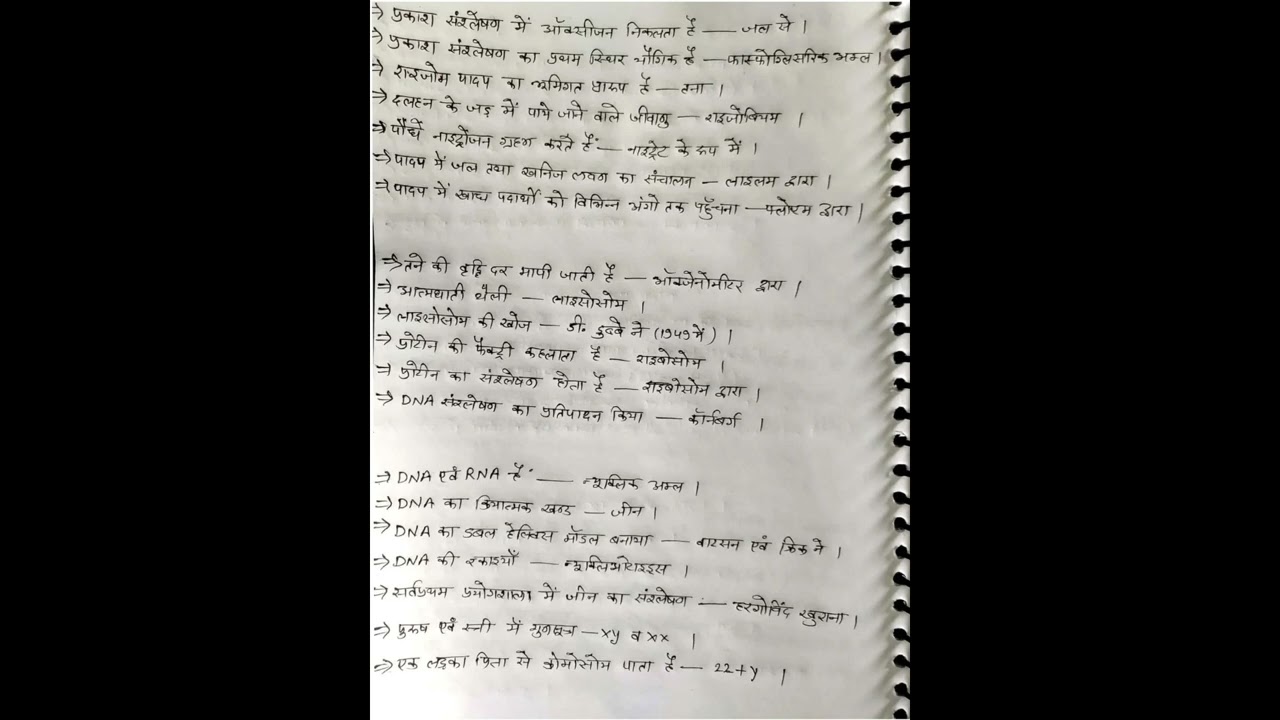 ⇒ प्रकाश संश्लेषण में ऑक्सीजन निकलता है — जल से |
⇒ प्रकाश संश्लेषण का प्रथम स्थिर यौगिक है — फास्फोग्लिसरिक अम्ल |
⇒ राइजोम पादप का भूमिगत प्रारूप है — तना |
⇒ दलहन के जड़ में पाये जाने वाले जीवाणु — राइजोबियम |
⇒ पौधें नाइट्रोजन ग्रहण करते हैं — नाइट्रेट के रूप में |
⇒ पादप में जल तथा खनिज लवण का संचालन — जाइलम द्वारा |
⇒ पादप में खाद्य पदार्थो को विभिन्न अंगो तक पहुँचना — फ्लोएम द्वारा |
⇒ तने की वृद्वि दर मापी जाती है — ऑक्जेनोमीटर द्वारा |
⇒ आत्मघाती थैली — लाइसोसोम |
⇒ लाइसोसोम की खोज — डी. डुवे ने (1949 में) |
⇒ प्रोटीन की फैक्ट्री कहलाता है — राइबोसोम |
⇒ प्रोटीन का संश्लेषण होता है — राइबोसोम द्वारा |
⇒ DNA संश्लेषण का प्रतिपादन किया — कॉर्नबर्ग |
⇒ DNA एवं RNA हैं — न्यूक्लिक अम्ल |
⇒ DNA का क्रियात्मक खण्ड — जीन |
⇒ DNA का डबल हेलिक्स मॉडल बनाया — वाटसन एवं क्रिक ने |
⇒ DNA की इकाइयाँ — न्यूक्लिओटाइड्स |
⇒ सर्वप्रथम प्रयोगशाला में जीन का संश्लेषण — हरगोविंद खुराना |
⇒ पुरुष एवं स्त्री में गुणसूत्र — xy व xx |
⇒ एक लड़का पिता से क्रोमोसोम पाता है — 22+y |